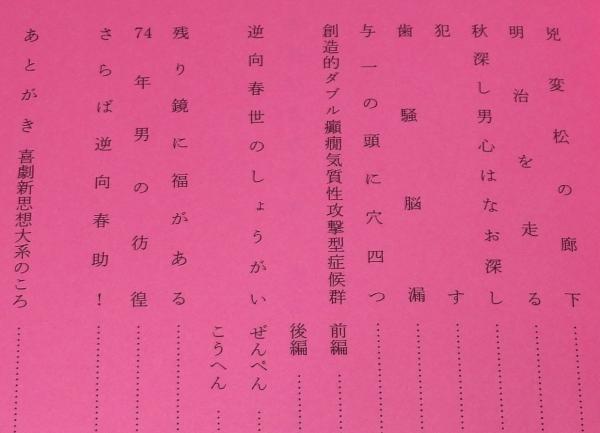 兇変松の廊下…………
明治を走る…………
秋深し男心はなお深し…………
犯す…………
歯騒脳漏…………
与一の頭に穴四つ…………
創造的ダブル癲癇気質性攻撃型症候群 前編…………
後編…………
逆向春世のしょうがい ぜんぺん…………
こうへん…………
残り鏡に福がある…………
74年男の彷徨…………
さらば逆向春助!…………
あとがき 喜劇新思想大系のころ…………